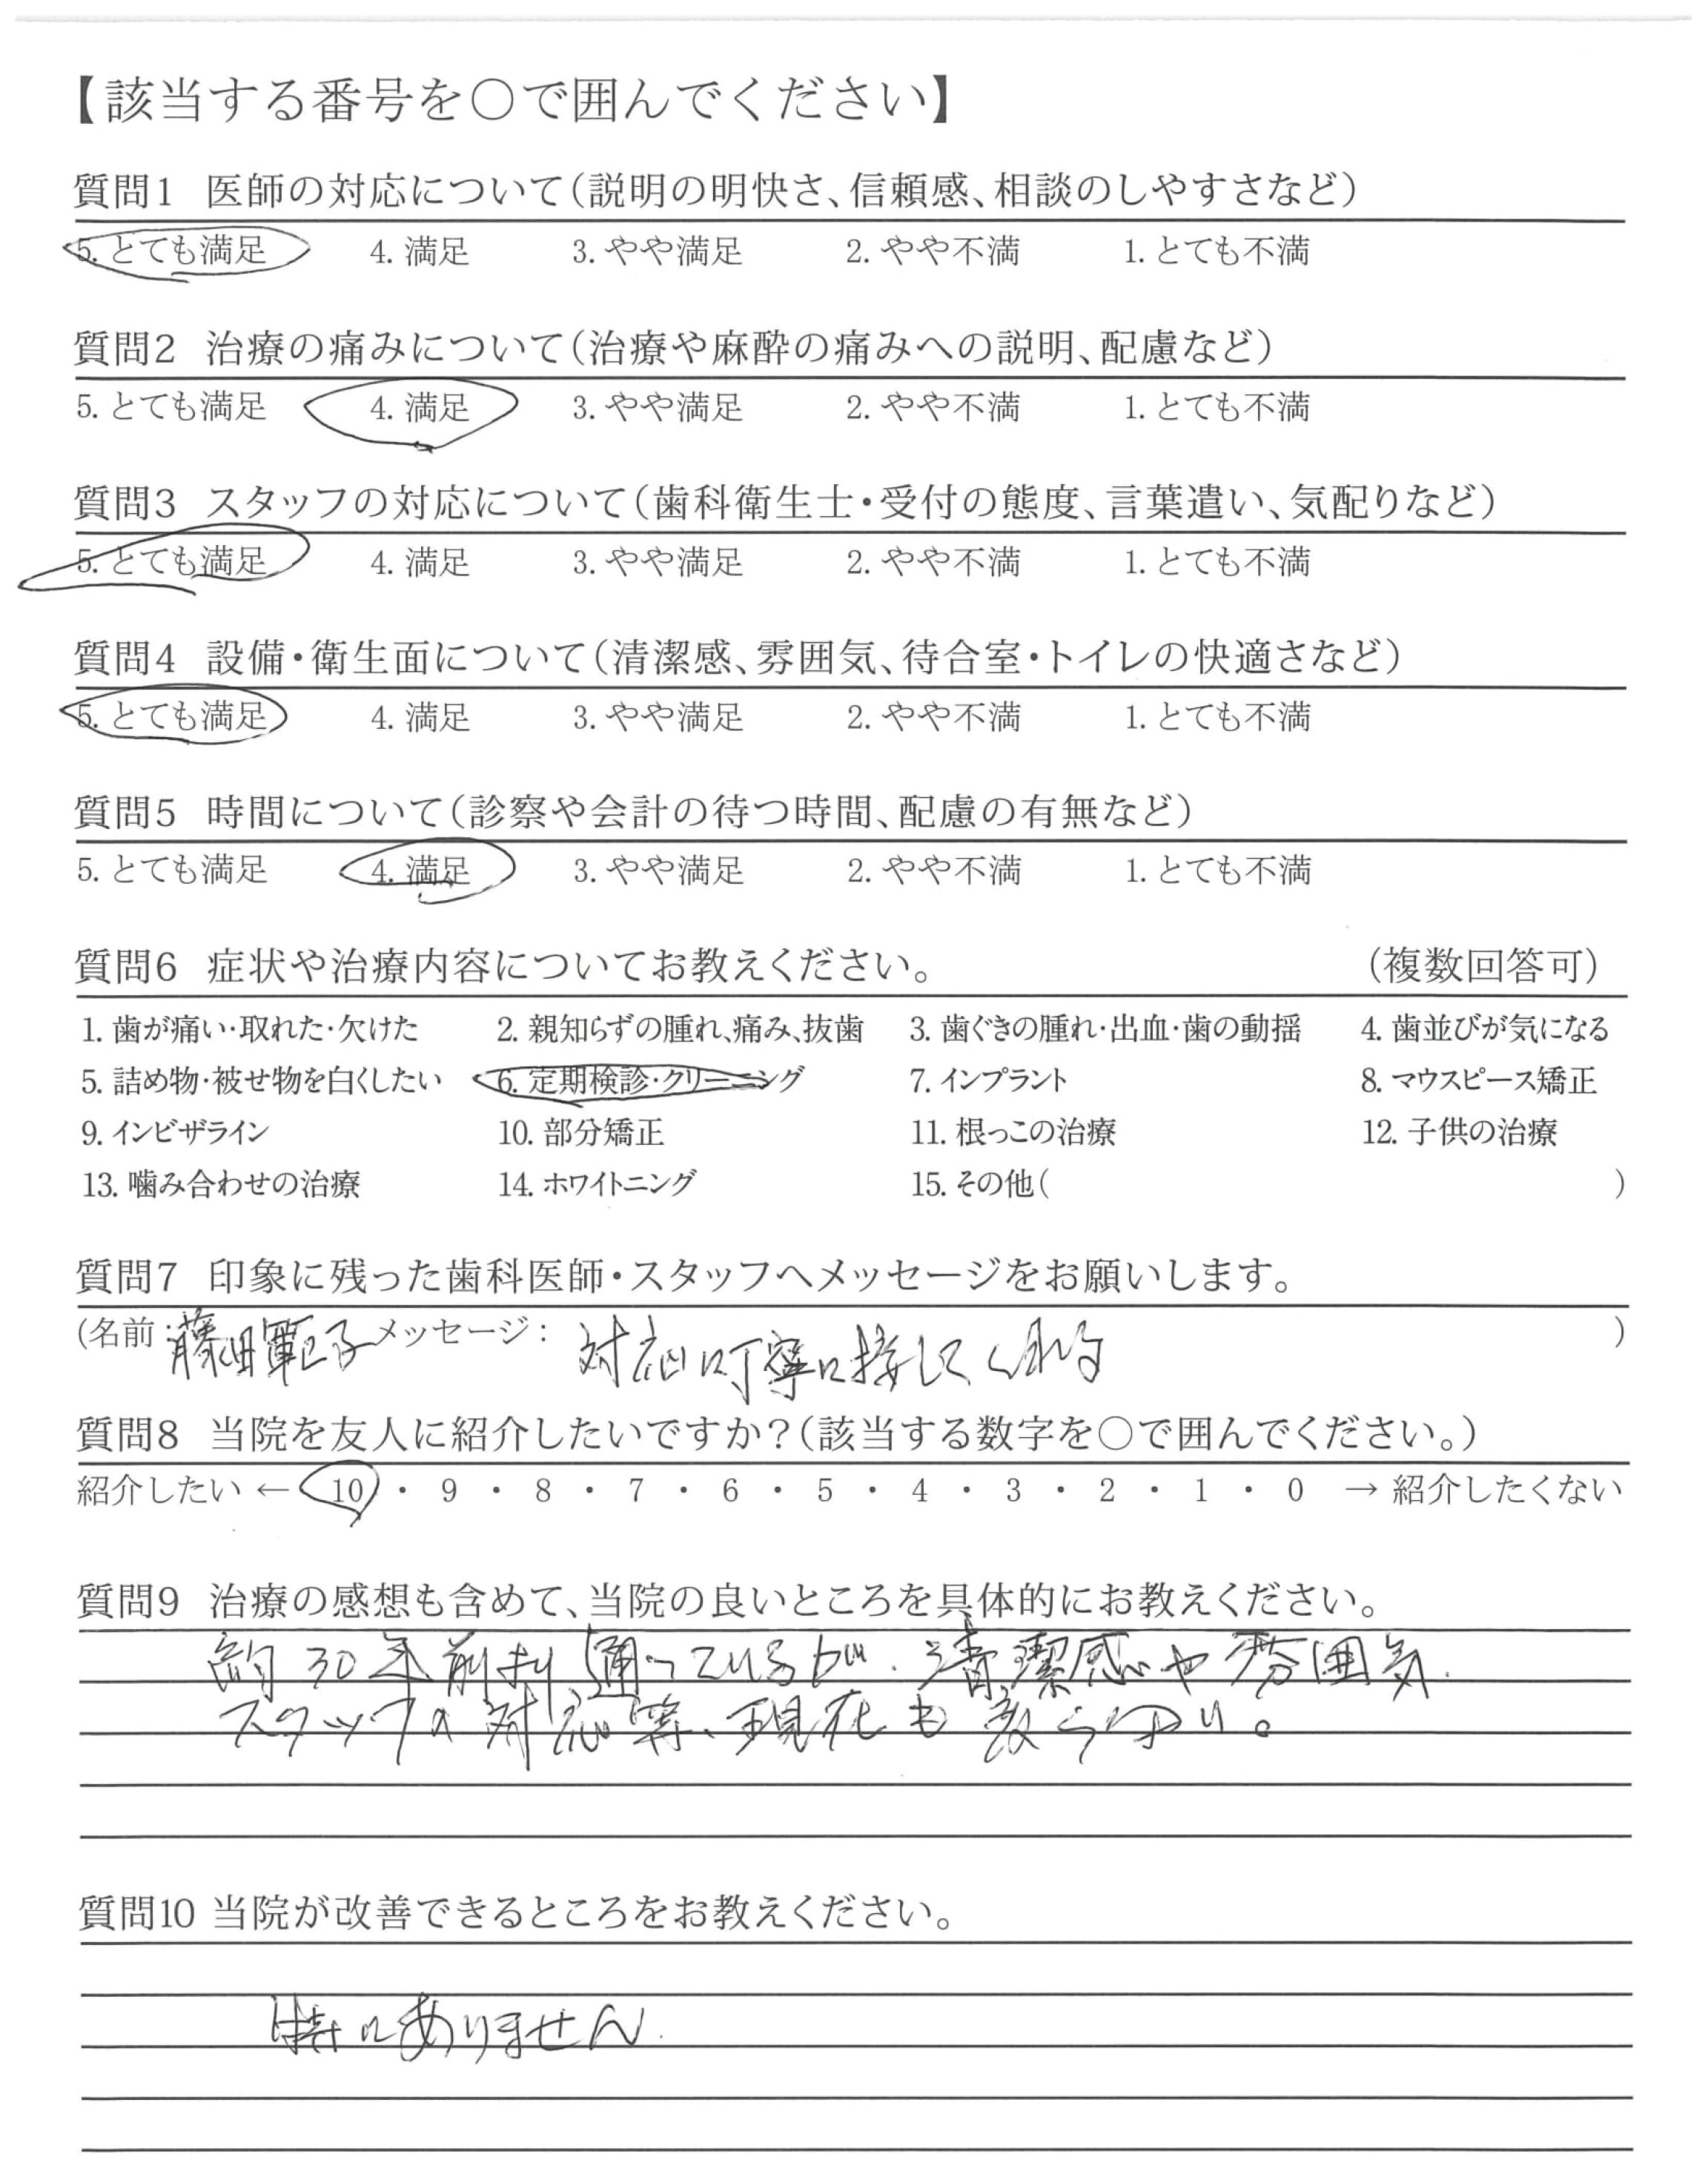 【該当する番号を〇で囲んでください】
質問1 医師の対応について(説明の明快さ、信頼感、相談のしやすさなど)
5. とても満足 4. 満足 3. やや満足 2. やや不満 1. とても不満
質問2 治療の痛みについて(治療や麻酔の痛みへの説明、配慮など)
5. とても満足 4. 満足 3. やや満足 2. やや不満 1. とても不満
質問3 スタッフの対応について(歯科衛生士・受付の態度、言葉遣い、気配りなど)
5. とても満足 4. 満足 3. やや満足 2. やや不満 1. とても不満
質問4 設備・衛生面について(清潔感、雰囲気、待合室・トイレの快適さなど)
5. とても満足 4. 満足 3. やや満足 2. やや不満 1. とても不満
質問5 時間について(診察や会計の待つ時間、配慮の有無など)
5. とても満足 4. 満足 3. やや満足 2. やや不満 1. とても不満
質問6 症状や治療内容についてお教えください。 (複数回答可)
1. 歯が痛い・取れた・欠けた 2. 親知らずの腫れ、痛み、抜歯 3. 歯ぐきの腫れ・出血・歯の動揺 4. 歯並びが気になる
5. 詰め物・被せ物を白くしたい 6. 定期検診・クリーニング 7. インプラント 8. マウスピース矯正
9. インビザライン 10. 部分矯正 11. 根っこの治療 12. 子供の治療
13. 噛み合わせの治療 14. ホワイトニング 15. その他( )
質問7 印象に残った歯科医師・スタッフへメッセージをお願いします。
(名前: 藤田 子 メッセージ: 対応に丁寧に接してくれる )
質問8 当院を友人に紹介したいですか?(該当する数字を〇で囲んでください。)
紹介したい ← 10 ・ 9 ・ 8 ・ 7 ・ 6 ・ 5 ・ 4 ・ 3 ・ 2 ・ 1 ・ 0 → 紹介したくない
質問9 治療の感想も含めて、当院の良いところを具体的にお教えください。
約30年前より通っているが、清潔感や雰囲気
スタッフの対応等、現在も変らない。
質問10 当院が改善できるところをお教えください。
特にありません